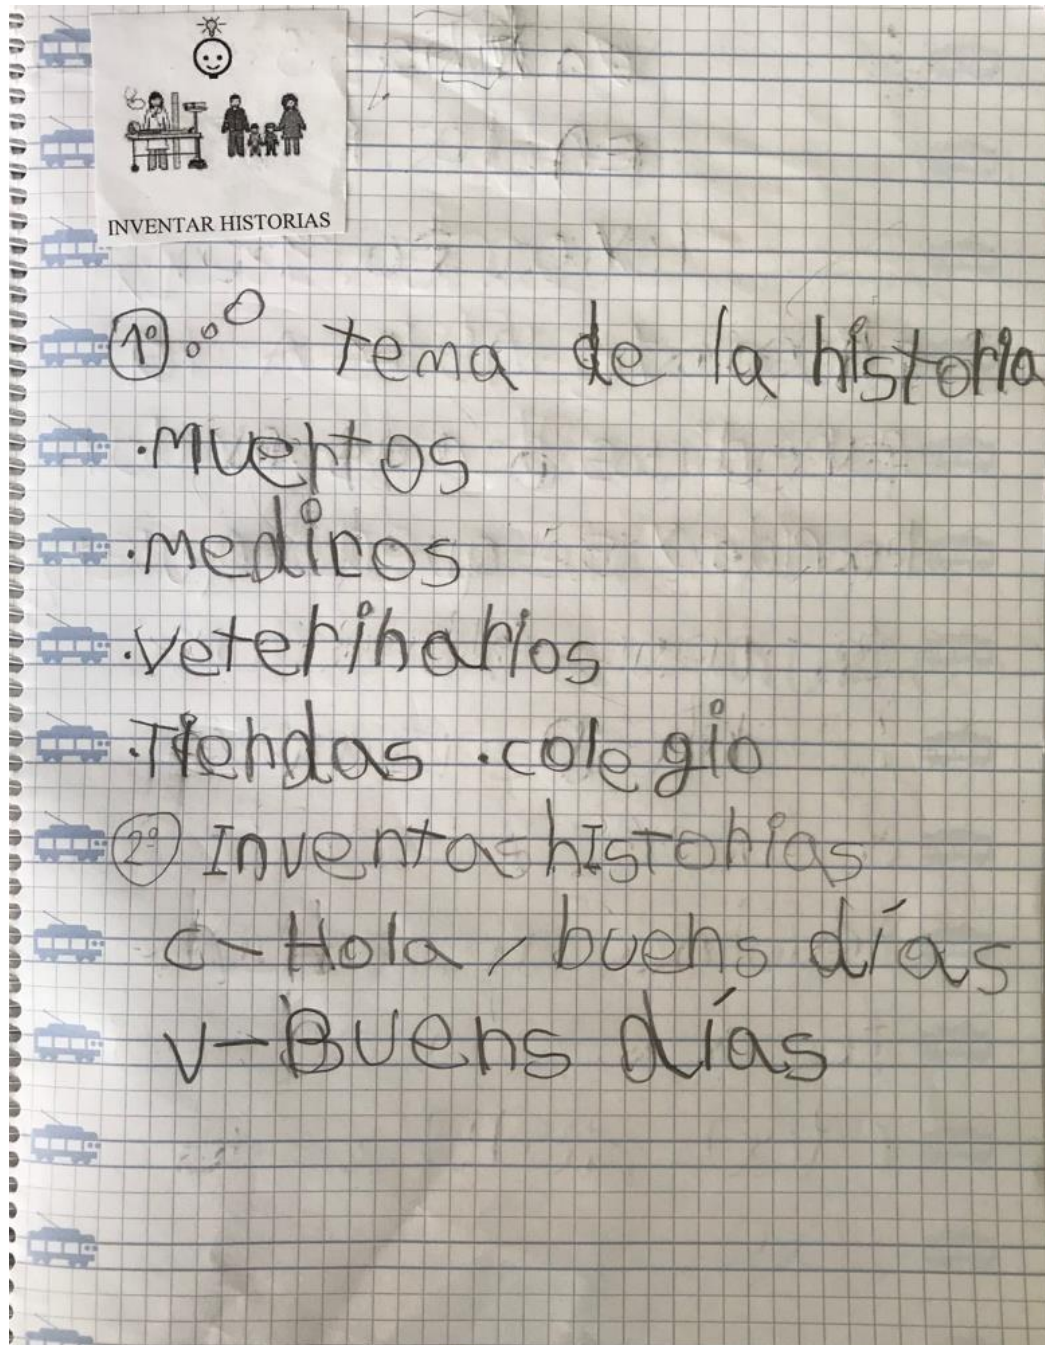 INVENTAR HISTORIAS
1º tema de la historia
·Muertos
·Medicos
·veterinarios
·Tiendas ·colegio
2º Inventa historias
C-Hola, buens días
V-Buens días